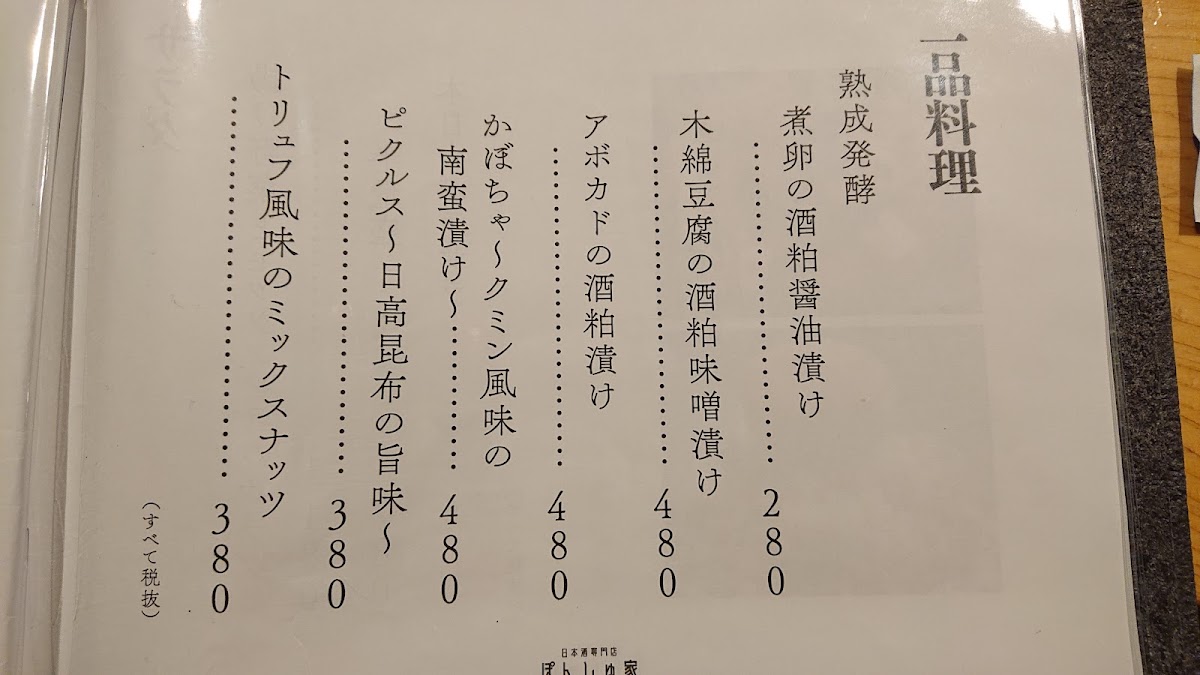 一品料理
熟成発酵
煮卵の酒粕醤油漬け
280
木綿豆腐の酒粕味噌漬け
480
アボカドの酒粕漬け
480
かぼちゃ〜クミン風味の
南蛮漬け〜
480
ピクルス〜日高昆布の旨味〜
380
トリュフ風味のミックスナッツ
380
(すべて税抜)
日本酒専門店
ぽんしゅ家